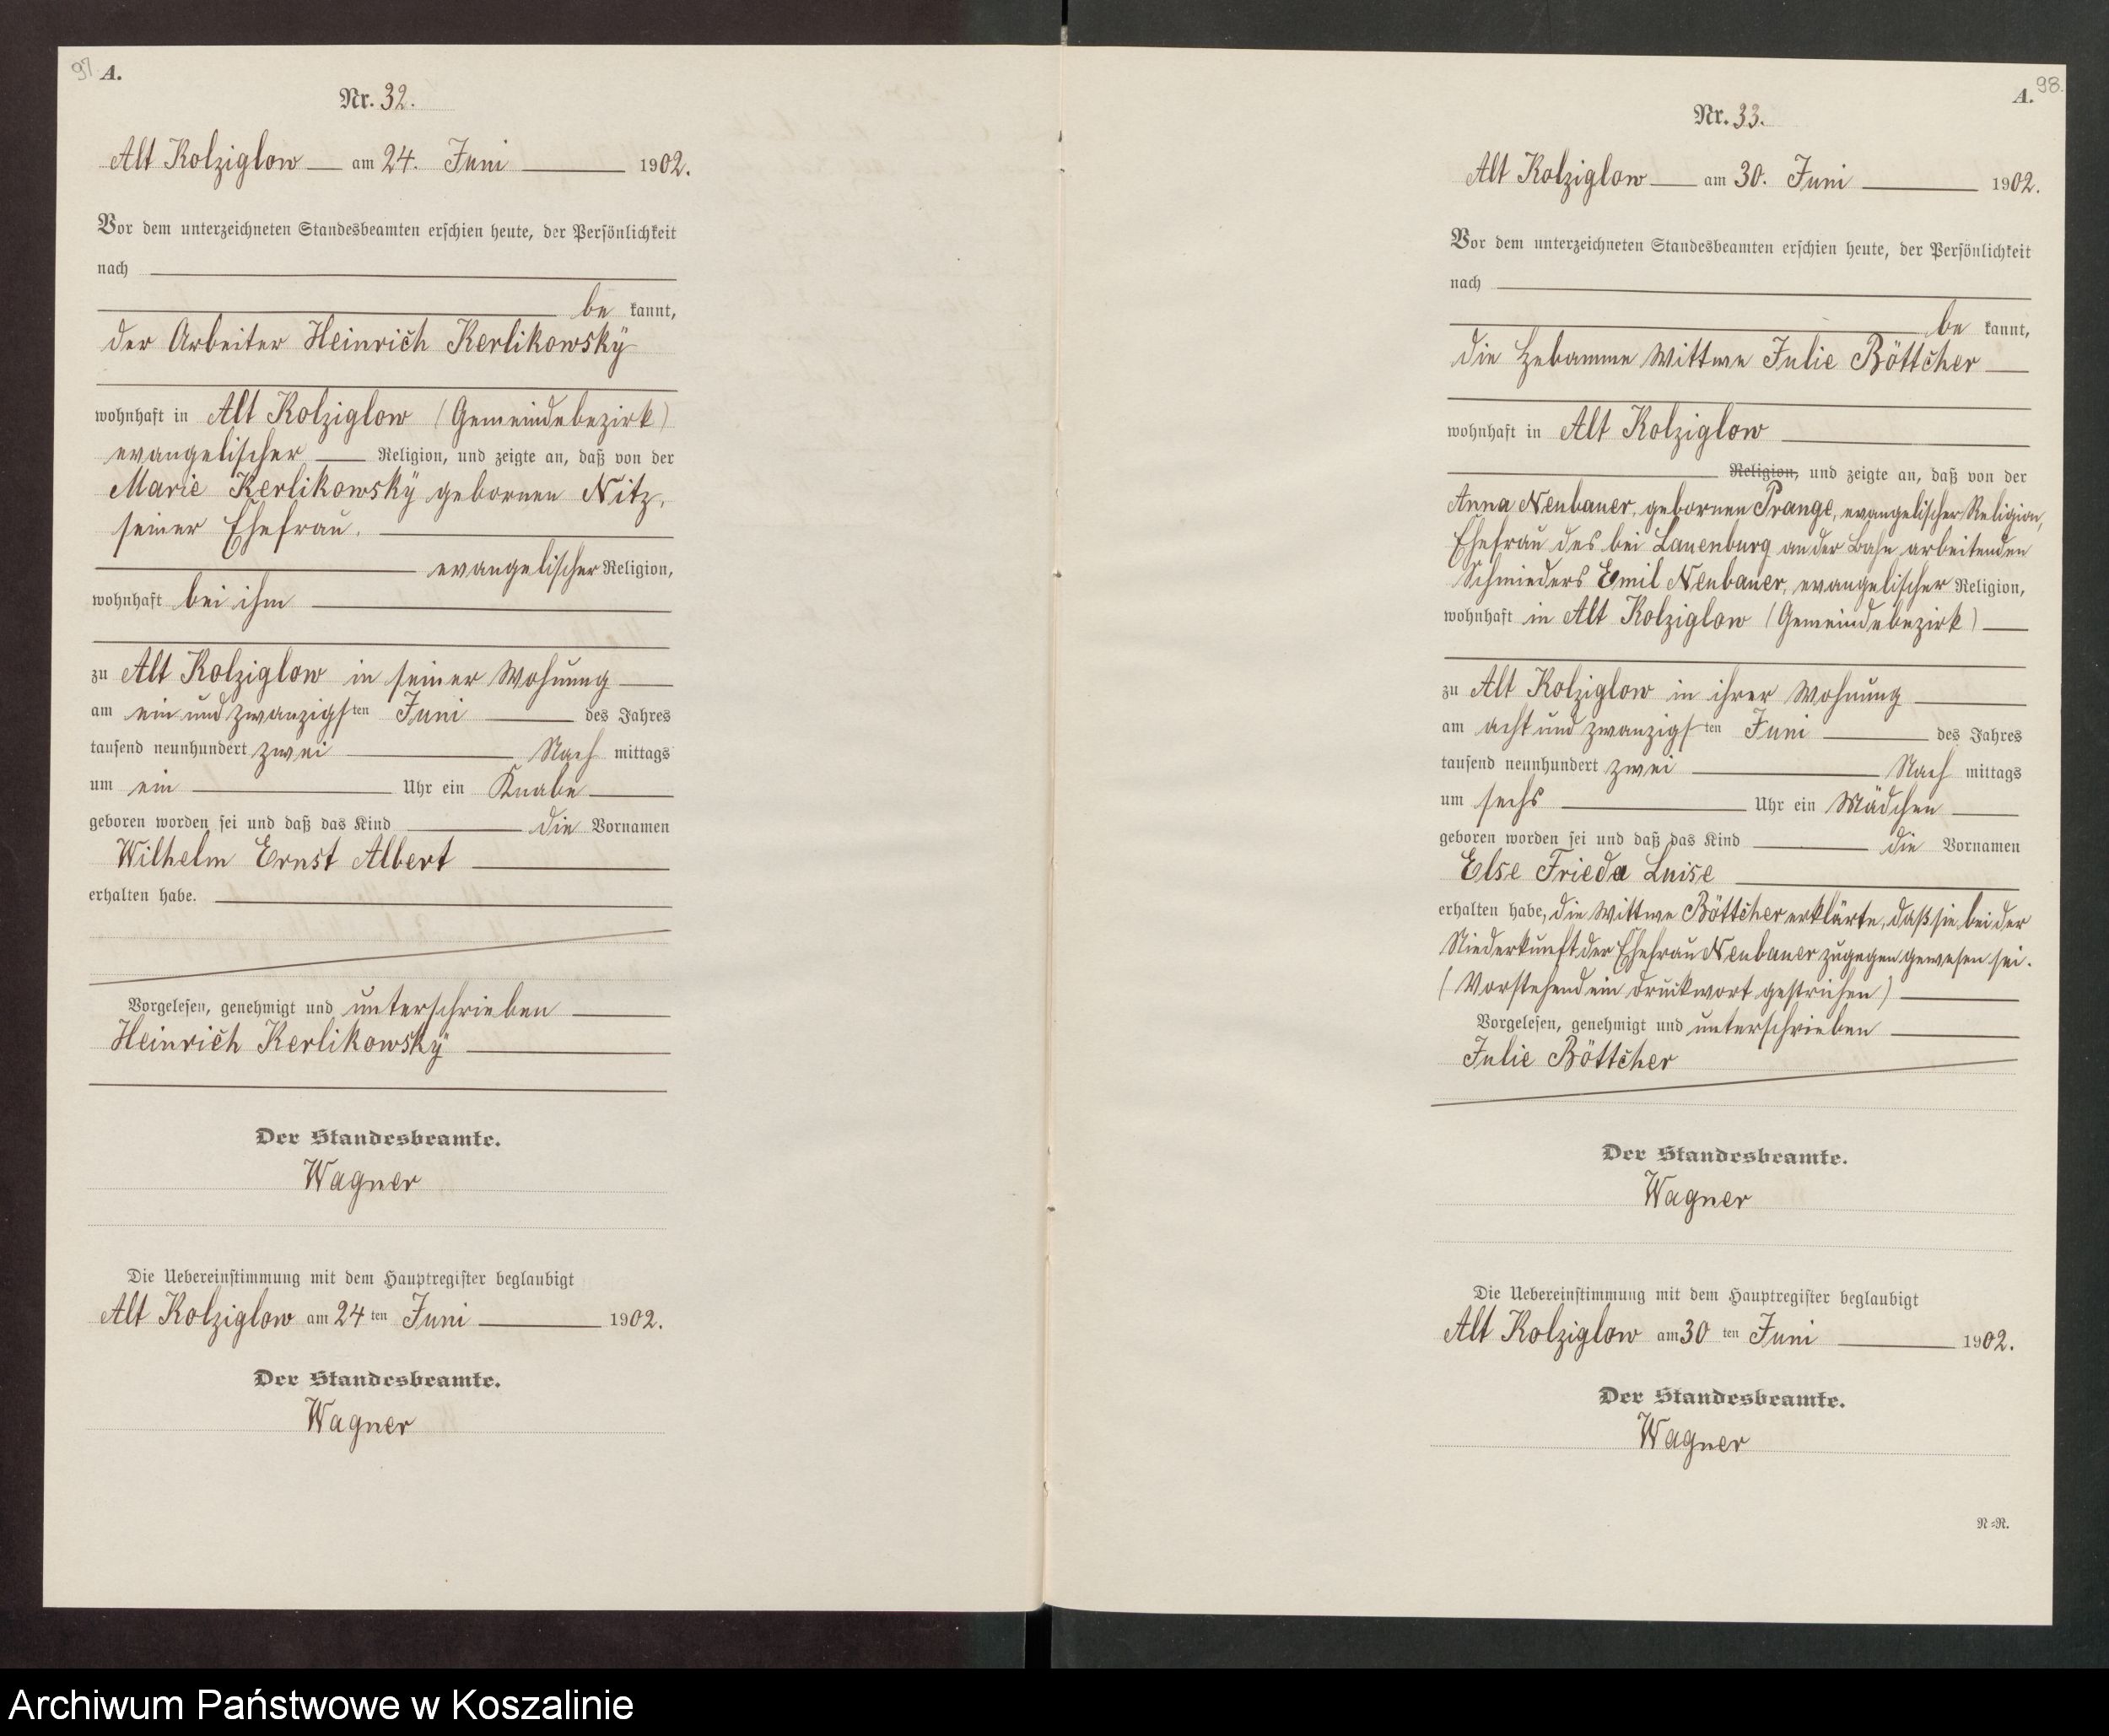 97 A.
Nr. 32.
Alt Kolziglow am 24. Juni 1902.
Vor dem unterzeichneten Standesbeamten erschien heute, der Persönlichkeit
nach
be kannt,
der Arbeiter Heinrich Kerlikowsky
wohnhaft in Alt Kolziglow (Gemeindebezirk)
evangelischer Religion, und zeigte an, daß von der
Marie Kerlikowsky gebornen Nitz,
seiner Ehefrau.
evangelischer Religion,
wohnhaft bei ihm
zu Alt Kolziglow in seiner Wohnung
am ein und zwanzigsten Juni des Jahres
tausend neunhundert zwei Nach mittags
um ein Uhr ein Knabe
geboren worden sei und daß das Kind die Vornamen
Wilhelm Ernst Albert
erhalten habe.
Vorgelesen, genehmigt und unterschrieben
Heinrich Kerlikowsky
Der Standesbeamte.
Wagner
Die Uebereinstimmung mit dem Hauptregister beglaubigt
Alt Kolziglow am 24 ten Juni 1902.
Der Standesbeamte.
Wagner
A. 98.
Nr. 33.
Alt Kolziglow am 30. Juni 1902.
Vor dem unterzeichneten Standesbeamten erschien heute, der Persönlichkeit
nach
be kannt,
die Hebamme Wittwe Julie Böttcher
wohnhaft in Alt Kolziglow
Religion, und zeigte an, daß von der
Anna Neubauer, gebornen Prange, evangelischer Religion,
Ehefrau des bei Lauenburg an der Bahn arbeitenden
Schmieders Emil Neubauer, evangelischer Religion,
wohnhaft in Alt Kolziglow (Gemeindebezirk)
zu Alt Kolziglow in ihrer Wohnung
am acht und zwanzigsten Juni des Jahres
tausend neunhundert zwei Nach mittags
um sechs Uhr ein Mädchen
geboren worden sei und daß das Kind die Vornamen
Else Frieda Luise
erhalten habe, die Wittwe Böttcher erklärte, daß sie bei der
Niederkunft der Ehefrau Neubauer zugegen gewesen sei.
(Vorstehend ein Druckwort gestrichen)
Vorgelesen, genehmigt und unterschrieben
Julie Böttcher
Der Standesbeamte.
Wagner
Die Uebereinstimmung mit dem Hauptregister beglaubigt
Alt Kolziglow am 30 ten Juni 1902.
Der Standesbeamte.
Wagner
N=R.
Archiwum Państwowe w Koszalinie